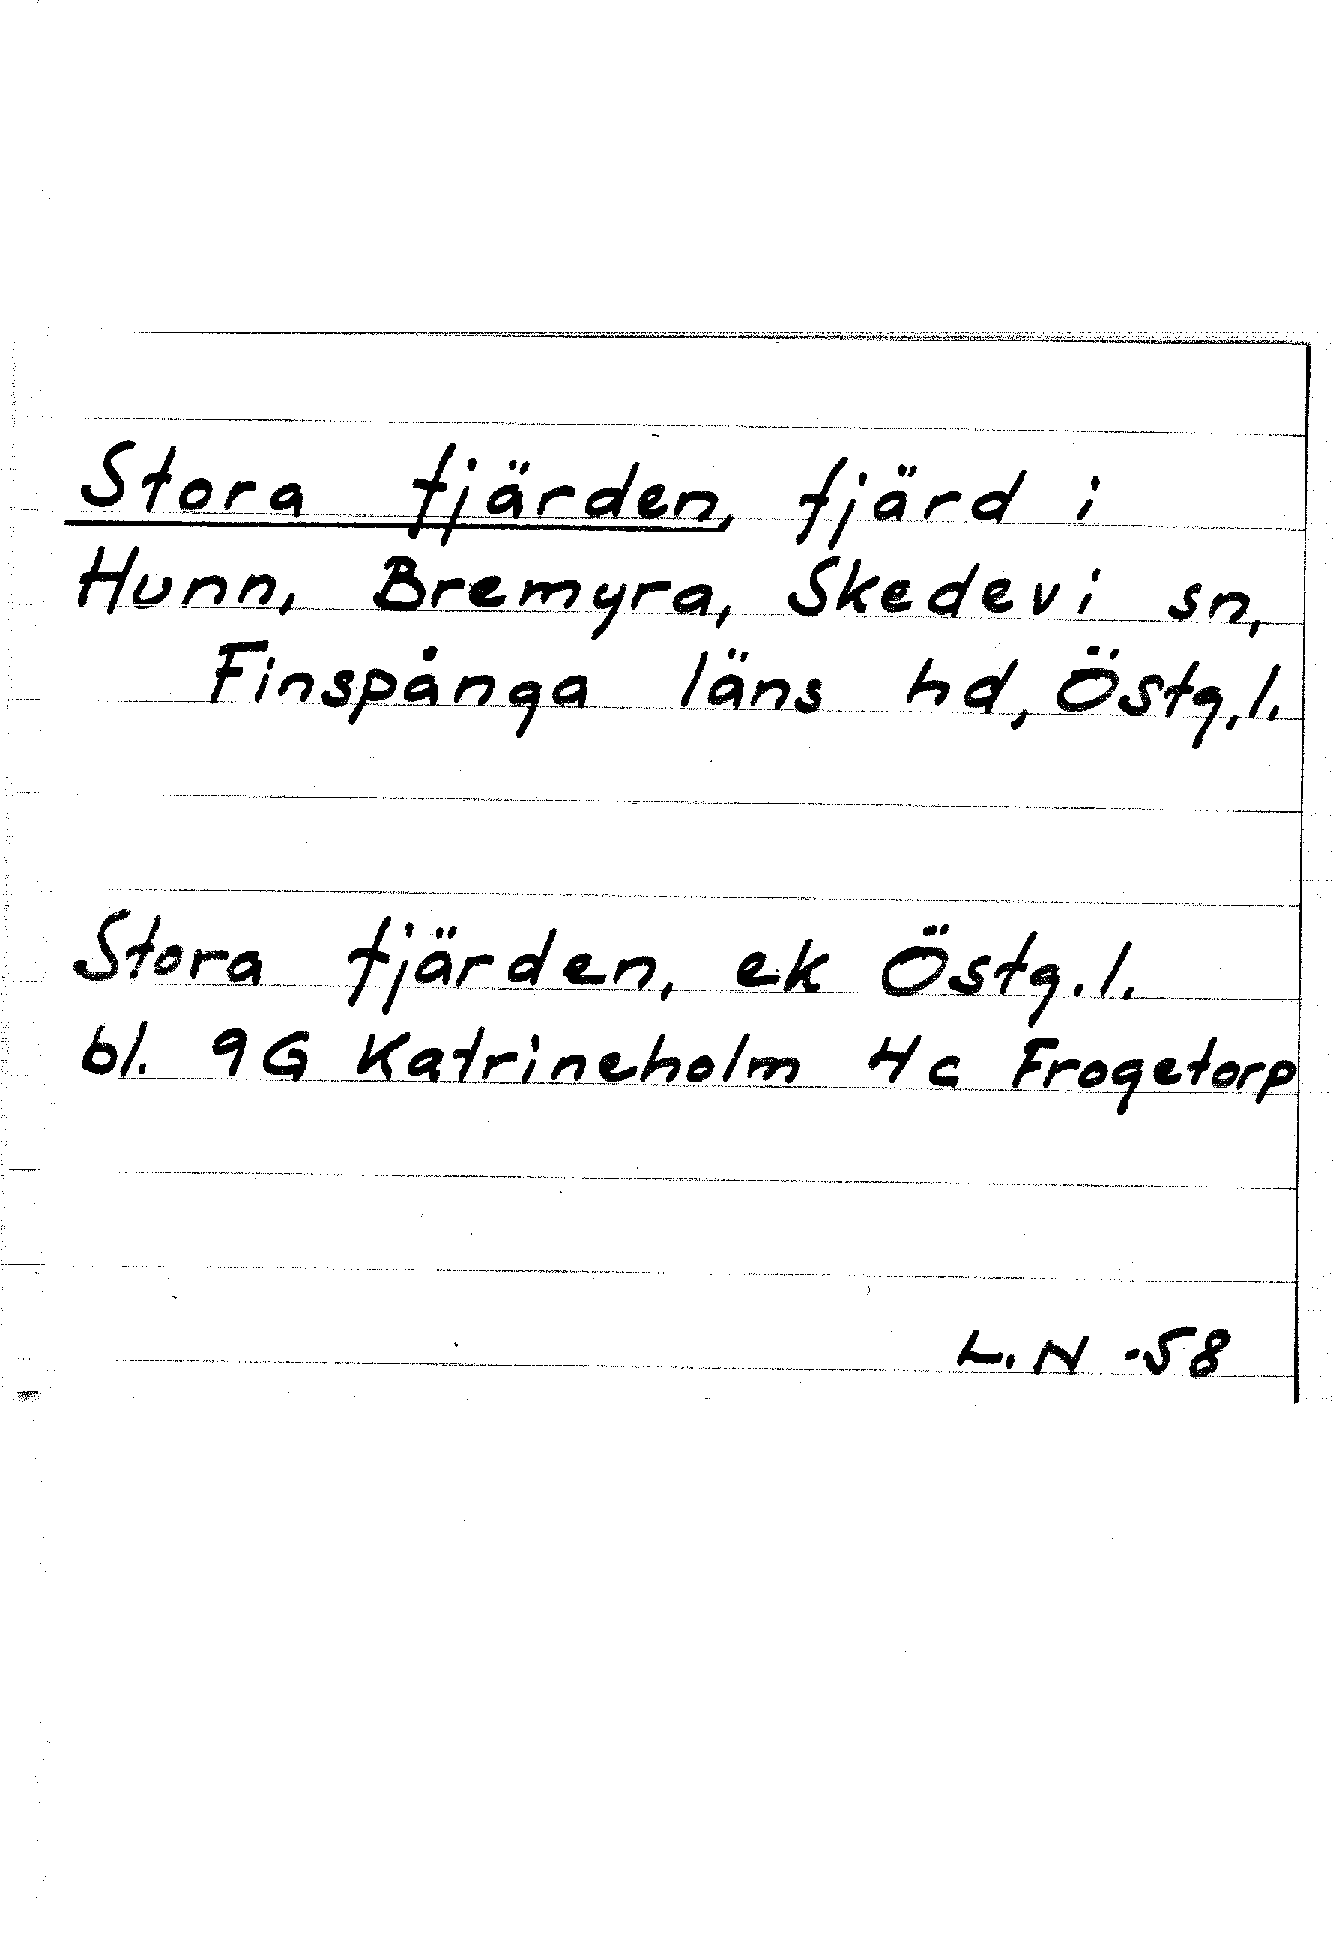 Stora fjärden, fjärd i
Hunn, Bremyra, Skedevi sn,
Finspånga läns hd, Östg.l.
Stora fjärden, ek Östg.l.
bl. 9G Katrineholm 4c Frogetorp
L.N -58